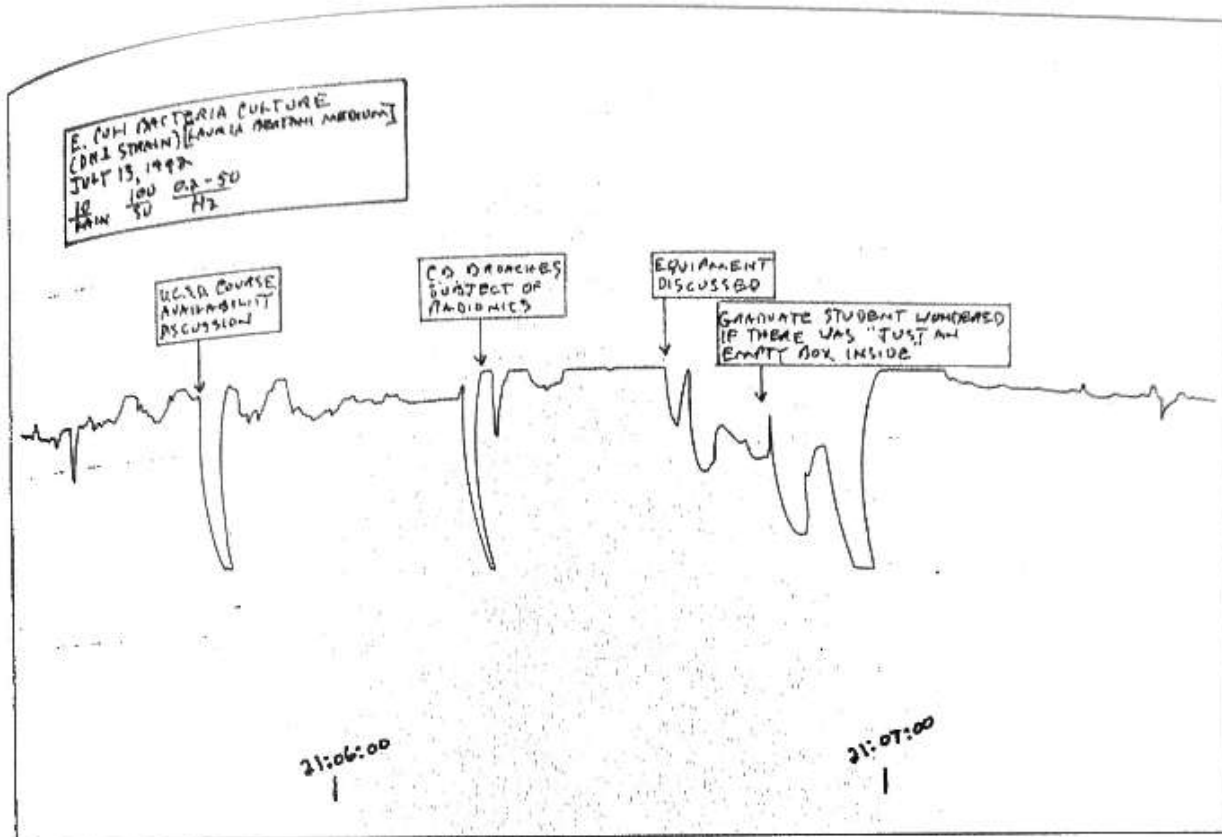 E. COLI BACTERIA CULTURE
STRAIN) MEDIUM]
JULY 13, 1992
10 100 0.2 - 50
GAIN 50 HZ
U.C.S.D. COURSE
AVAILABILITY
DISCUSSION
CB BROACHES
SUBJECT OF
RADIONICS
EQUIPMENT
DISCUSSED
GRADUATE STUDENT WONDERED
IF THERE WAS "JUST AN
EMPTY BOX INSIDE
21:06:00
21:07:00